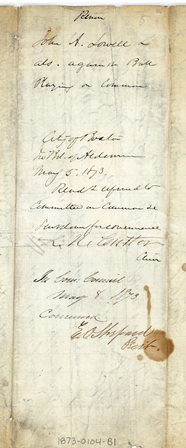 Petition
John A. Lowell &
als. against Ball
Playing on Common
City of Boston
In Bd. of Aldermen
May 5. 1873.
Read & referred to
Committee on Common &c
Send down for concurrence
Clerk
In Com. Council
May 8. 1873
Concurred
E. O. Shepard
Prest.
1873-0104-B1